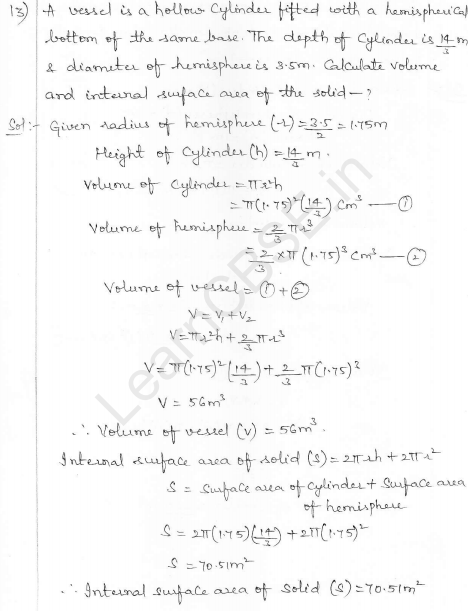 13) A vessel is a hollow cylinder fitted with a hemispherical
bottom of the same base. The depth of cylinder is 14/3 m
& diameter of hemisphere is 3.5m. Calculate volume
and internal surface area of the solid -?
Sol:- Given radius of hemisphere (r) = 3.5/2 = 1.75m
Height of cylinder (h) = 14/3 m.
Volume of cylinder = πr²h
= π(1.75)² (14/3) cm³ — ①
Volume of hemisphere = 2/3 πr³
= 2/3 × π (1.75)³ cm³ — ②
Volume of vessel = ① + ②
V = V₁ + V₂
V = πr²h + 2/3 πr³
V = π(1.75)² (14/3) + 2/3 π(1.75)³
V = 56m³
∴ Volume of vessel (V) = 56m³.
Internal surface area of solid (S) = 2πrh + 2πr²
S = Surface area of cylinder + Surface area
of hemisphere
S = 2π(1.75)(14/3) + 2π(1.75)²
S = 70.51m²
∴ Internal surface area of solid (S) = 70.51m²
LearnCBSE.in